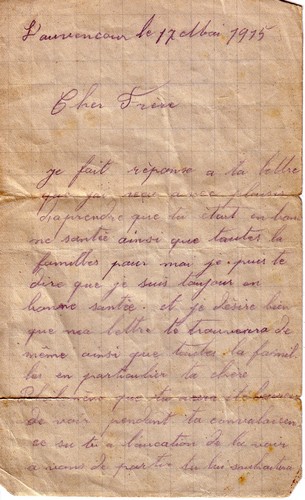 Louvencour le 17 Mai 1915
Cher Frère
je fait réponse a ta lettre
que j'ai reçu avec plaisir
d'aprendre que tu était en bon
ne santée ainsi que toutes la
familles pour moi je puis te
dire que je suis toujour en
bonne santée. et je désire bien
que ma lettre te trouvera de
même ainsi que toutes ta famil
les en particulier ta chère
que tu aura
de voir pendant ta convalescen
ce si tu a l'aucation de la voir
a vans de partir tu lui